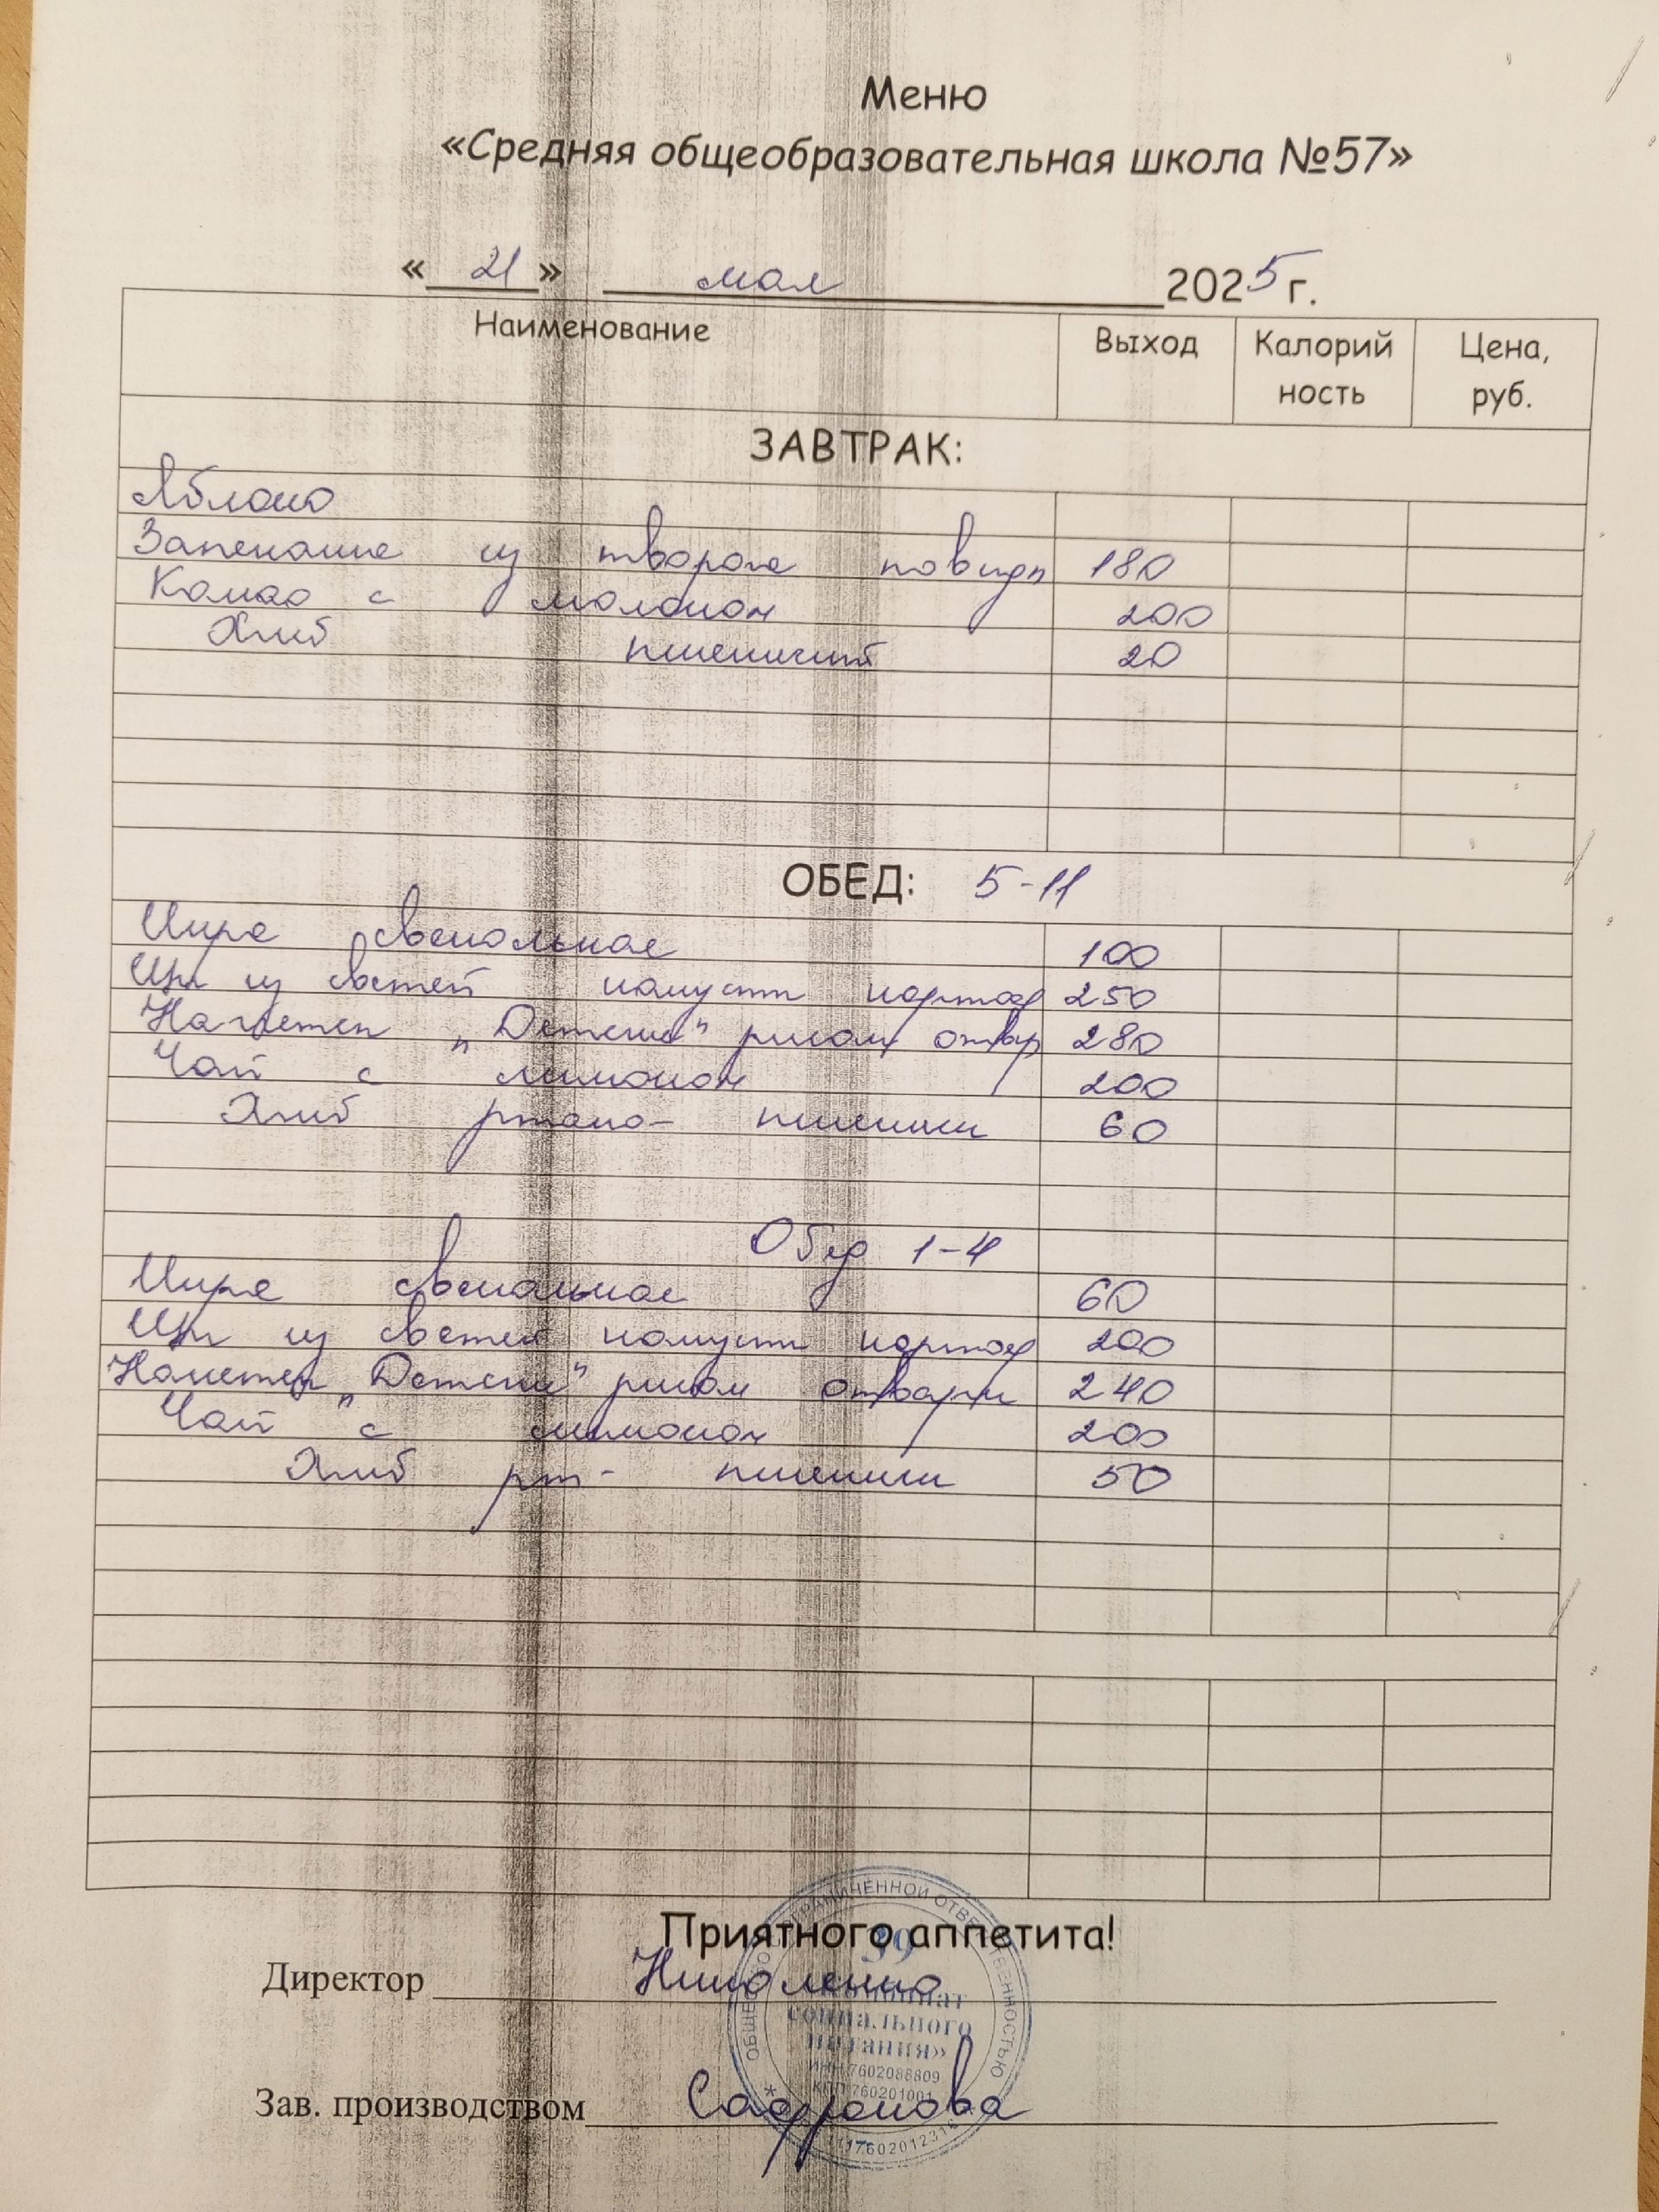 Меню
«Средняя общеобразовательная школа №57»
« 21 » мая 2025 г.
Наименование Выход Калорий ность Цена, руб.
ЗАВТРАК:
Яблоко
Запеканка из творога повидл 180
Какао с молоком 200
Хлеб пшеничный 20
ОБЕД: 5-11
Икра свекольная 100
Щи из свежей капусты картоф 250
Наггетсы „Детские" рисом отвар 280
Чай с лимоном 200
Хлеб ржано- пшеничн 60
Обед 1-4
Икра свекольная 60
Щи из свежей капусты картоф 200
„Детские" рисом отварн 240
Чай с лимоном 200
Хлеб рж- пшеничн 50
Приятного аппетита!
Директор Николенко
Зав. производством Сафронова
39
социального
питания»
ИНН 7602088809
КПП 760201001